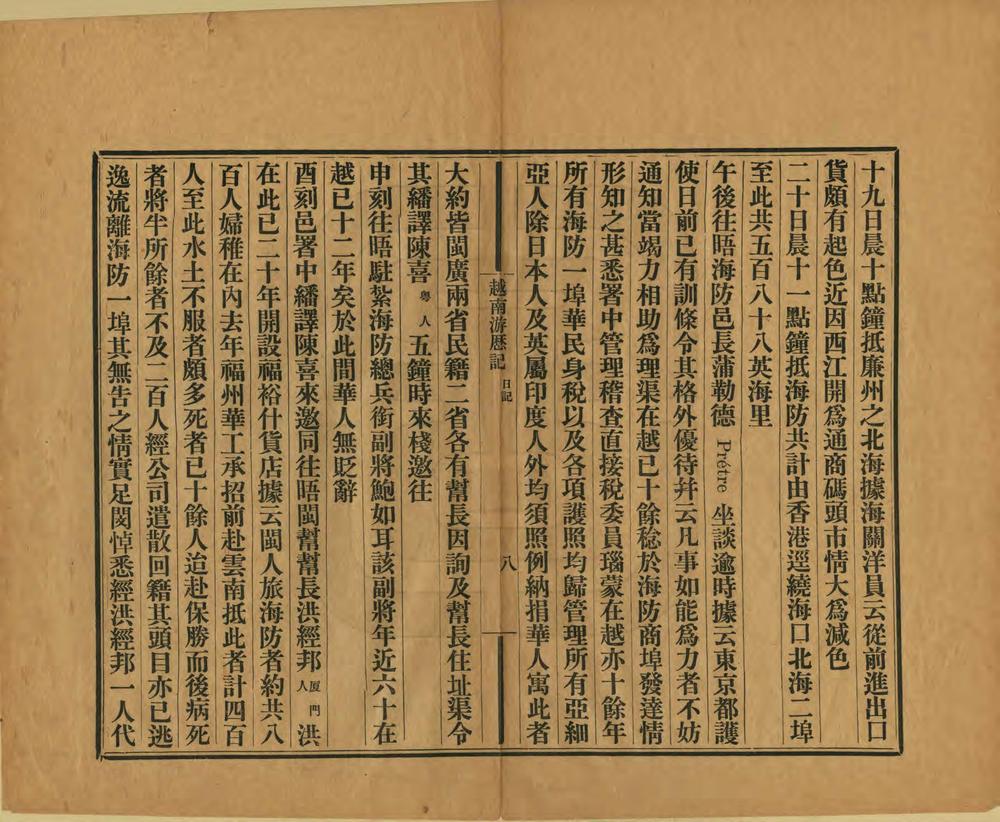 十九日晨十點鐘抵廉州之北海據海關洋員云從前進出口
貨頗有起色近因西江開爲通商碼頭市情大爲減色
二十日晨十一點鐘抵海防共計由香港逕繞海口北海二埠
至此共五百八十八英海里
午後往晤海防邑長蒲勒德 Prétre 坐談逾時據云東京都護
使日前已有訓條令其格外優待幷云凡事如能爲力者不妨
通知當竭力相助爲理渠在越已十餘稔於海防商埠發達情
形知之甚悉署中管理稽查直接稅委員瑙蒙在越亦十餘年
所有海防一埠華民身稅以及各項護照均歸管理所有亞細
亞人除日本人及英屬印度人外均須照例納捐華人寓此者
越南游歷記 日記 八
大約皆閩廣兩省民籍二省各有幫長因詢及幫長住址渠令
其繙譯陳喜 粵人 五鐘時來棧邀往
申刻往晤駐紮海防總兵銜副將鮑如耳該副將年近六十在
越已十二年矣於此間華人無貶辭
酉刻邑署中繙譯陳喜來邀同往晤閩幫幫長洪經邦 厦門人 洪
在此已二十年開設福裕什貨店據云閩人旅海防者約共八
百人婦稚在內去年福州華工承招前赴雲南抵此者計四百
人至此水土不服者頗多死者已十餘人迨赴保勝而後病死
者將半所餘者不及二百人經公司遣散回籍其頭目亦已逃
逸流離海防一埠其無告之情實足閔悼悉經洪經邦一人代